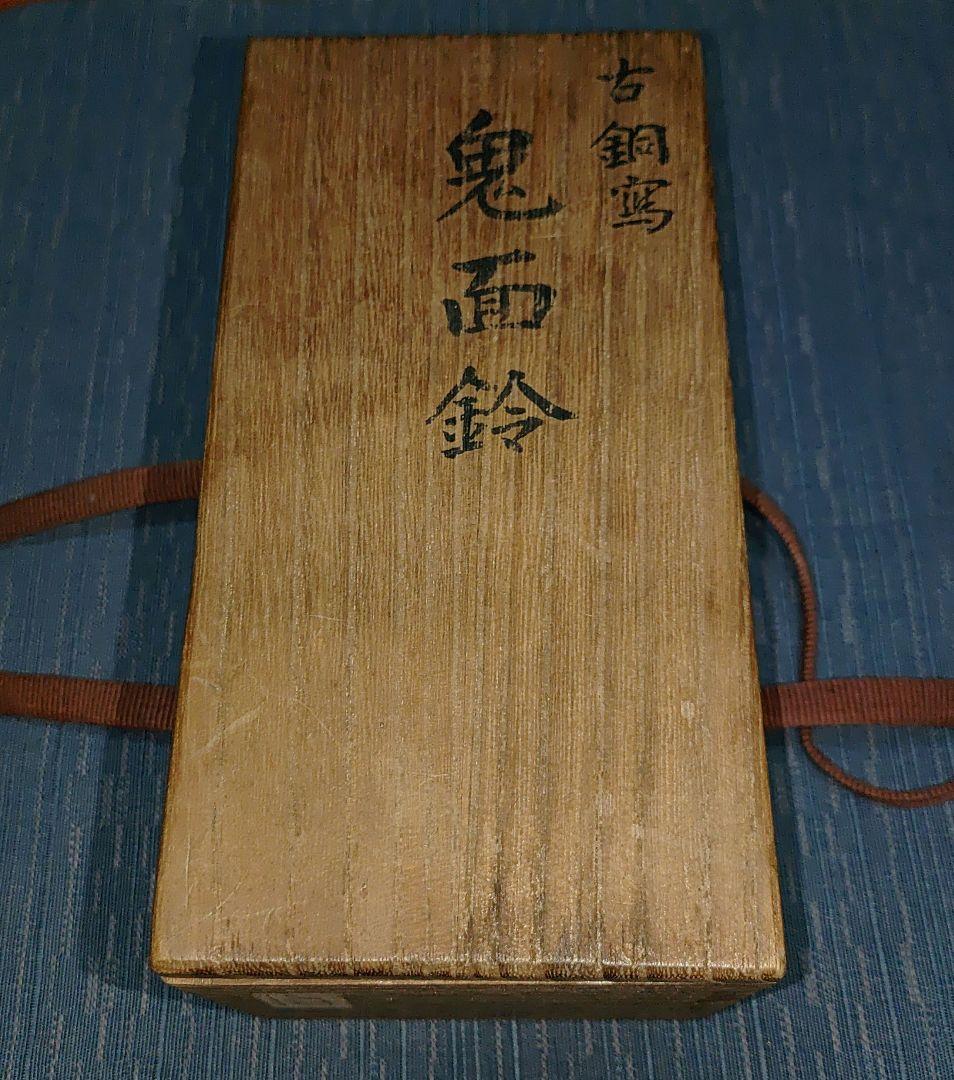 古銅寫
鬼面鈴